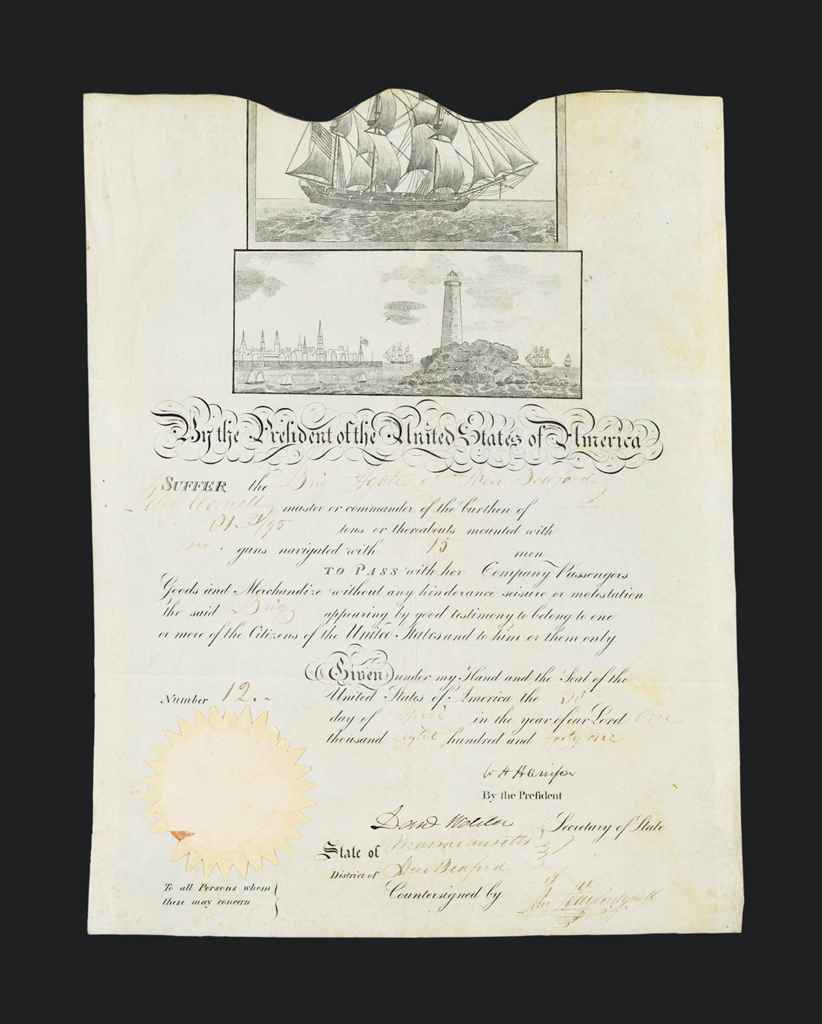 By the President of the United States of America
SUFFER the Brig of New Bedford
master or commander of the burthen of
95 tons or thereabouts mounted with
no guns navigated with 15 men
TO PASS with her Company Passengers
Goods and Merchandize without any hinderance seisure or molestation
the said Brig appearing by good testimony to belong to one
or more of the Citizens of the United States and to him or them only
Given under my Hand and the Seal of the
United States of America the
Number 12.
day of in the year of our Lord One
thousand eight hundred and forty one
W H Harrison
By the President
Danl Webster Secretary of State
State of Massachusetts
District of New Bedford
To all Persons whom
these may concern
Countersigned by